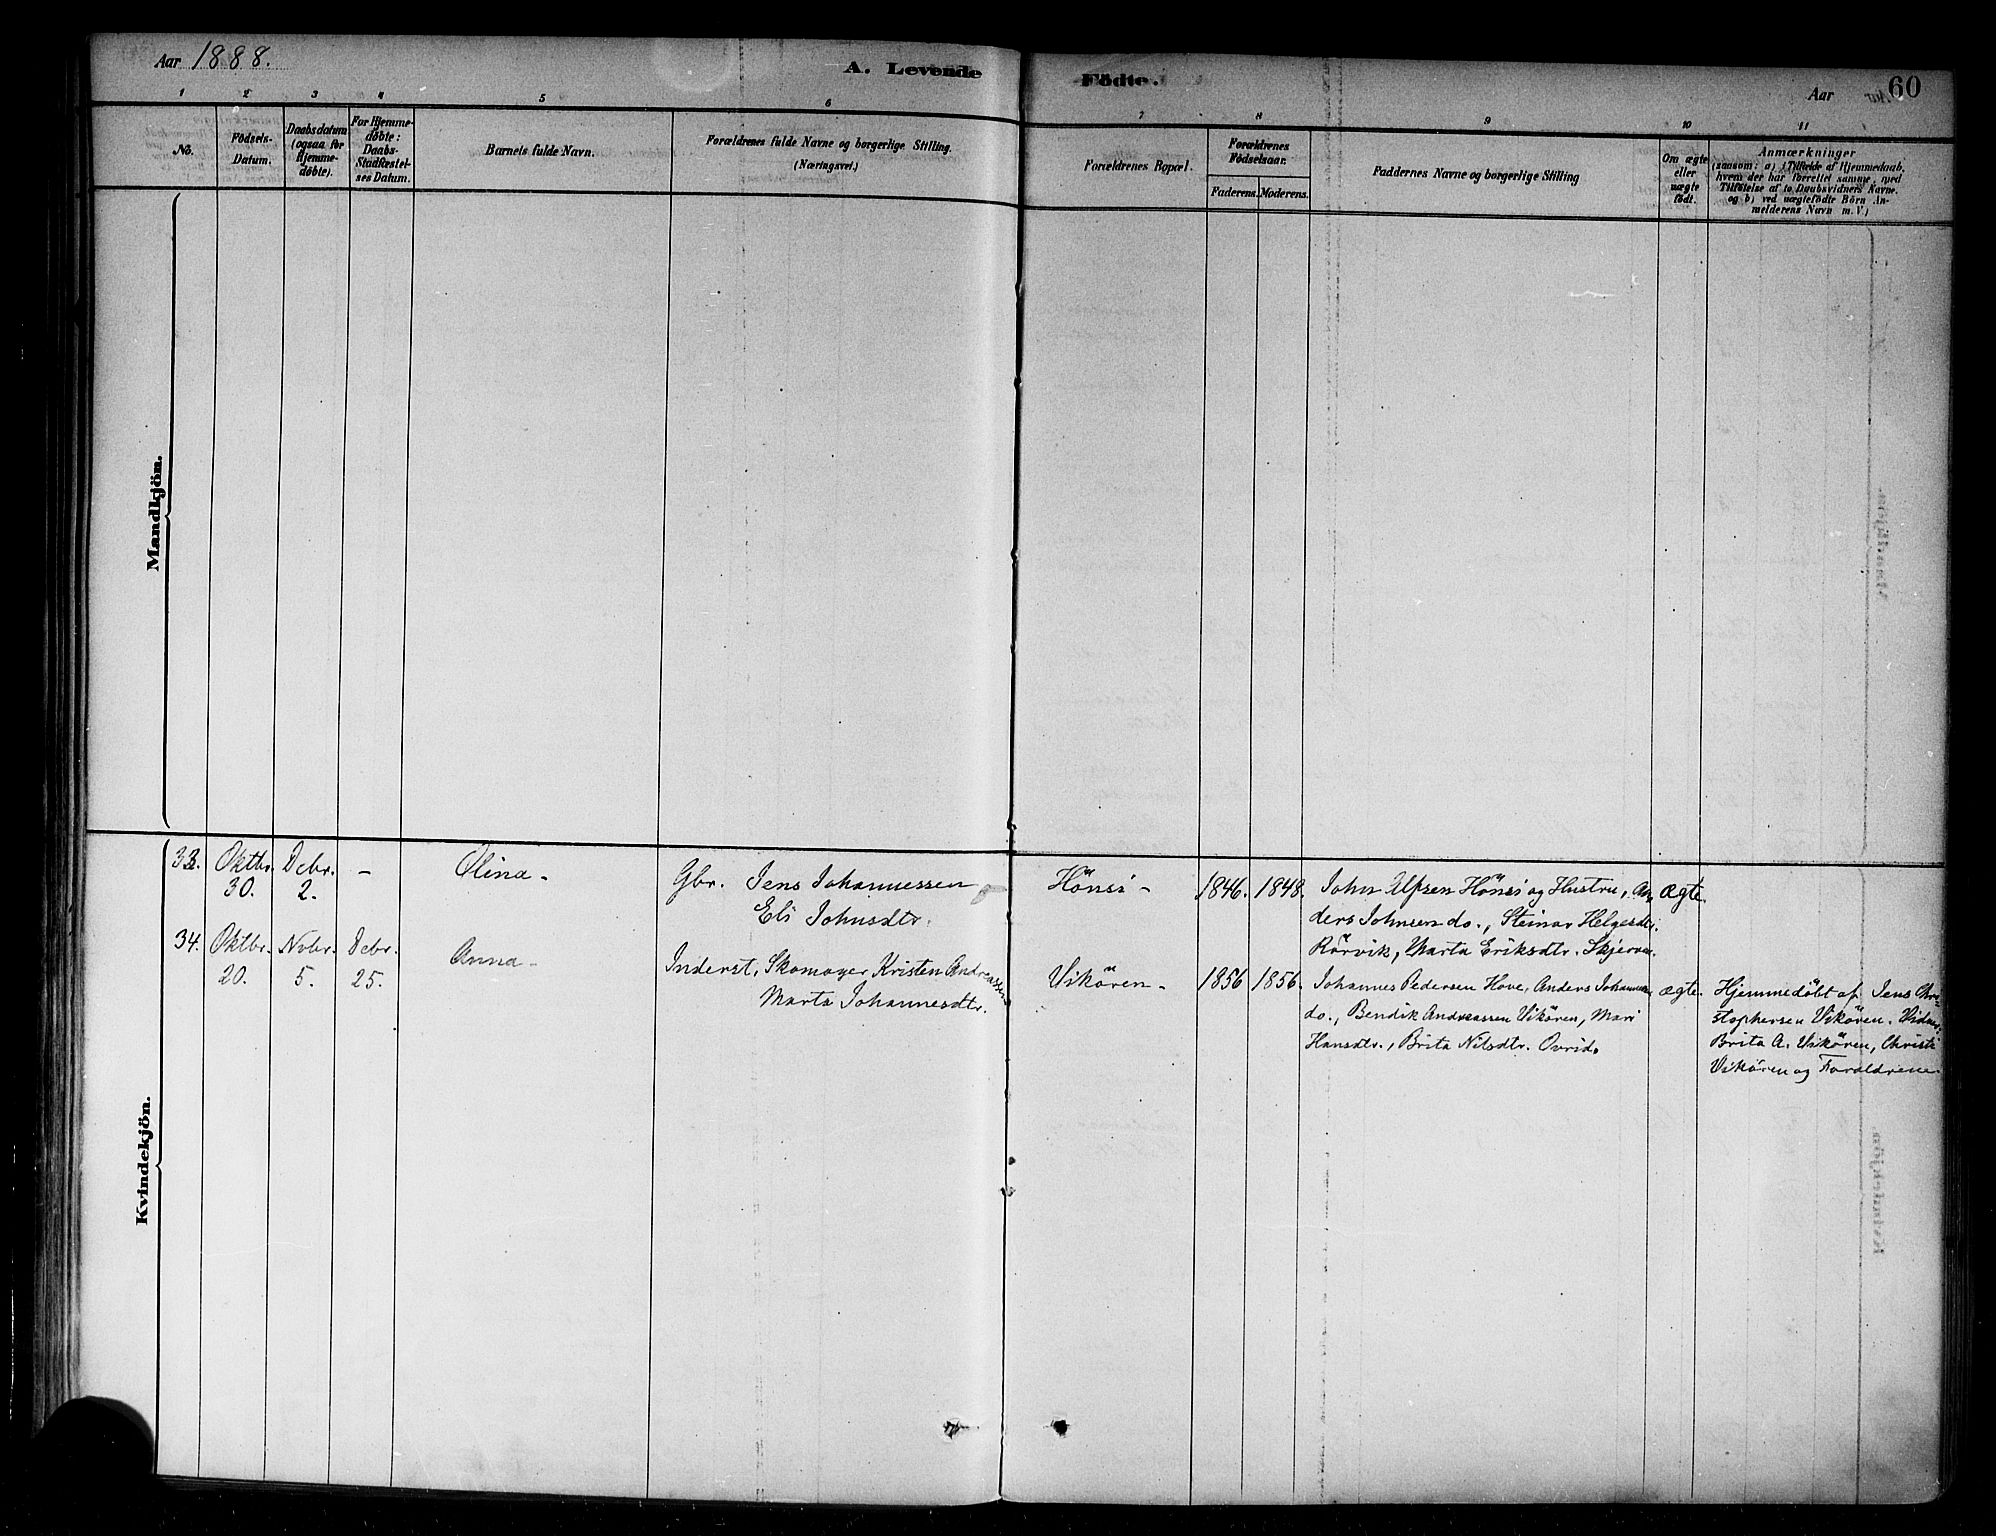 Aar 1888.
A. Levende Födte.
Aar
60
1 2 3 4 5 6 7 8 9 10 11
No.
Födsels-
Datum.
Daabsdatum
(ogsaa for
Hjemme-
döbte).
For Hjemme-
döbte:
Daabs-
Stadfæstel-
ses Datum.
Barnets fulde Navn.
Forældrenes fulde Navne og borgerlige Stilling.
(Næringsvei.)
Forældrenes Bopæl.
Forældrenes
Födselsaar.
Faderens. Moderens.
Faddernes Navne og borgerlige Stilling
Om ægte
eller
uægte
födt.
Anmærkninger
(saasom: a) Tilfælde af Hjemmedaab,
hvem der har forrettet samme, med
Tilföielse af to Daabsvidners Navne.
og b) ved uægtefödte Börn An-
melderens Navn m. V.)
Mandkjön.
Kvindekjön.
33. Oktbr. 30. Dcbr. 2. - Olina -
Gbr. Jens Johannessen
Eli Johnsdtr.
Hönsi - 1846. 1848.
John Ulfsen Hönsi og Hustru, An-
ders Johnsen do., Steinar Helgesdtr.
Rörvik, Marta Eriksdtr. Skjerven
ægte.
34. Oktbr. 20. Nvbr. 5. Dcbr. 25. Anna -
Inderst, Skomager Kristen Andreassen
Marta Johannesdtr.
Vikören - 1856 1856.
Johannes Pedersen Hove, Anders Johannesen
do., Bendik Andreassen Vikören, Mari
Hansdtr., Brita Nilsdtr. Ovrid.
ægte.
Hjemmedöbt af Jens Chri-
stophersen Vikören. Vidner:
Brita A. Vikören, Christi
Vikören og Forældrene.